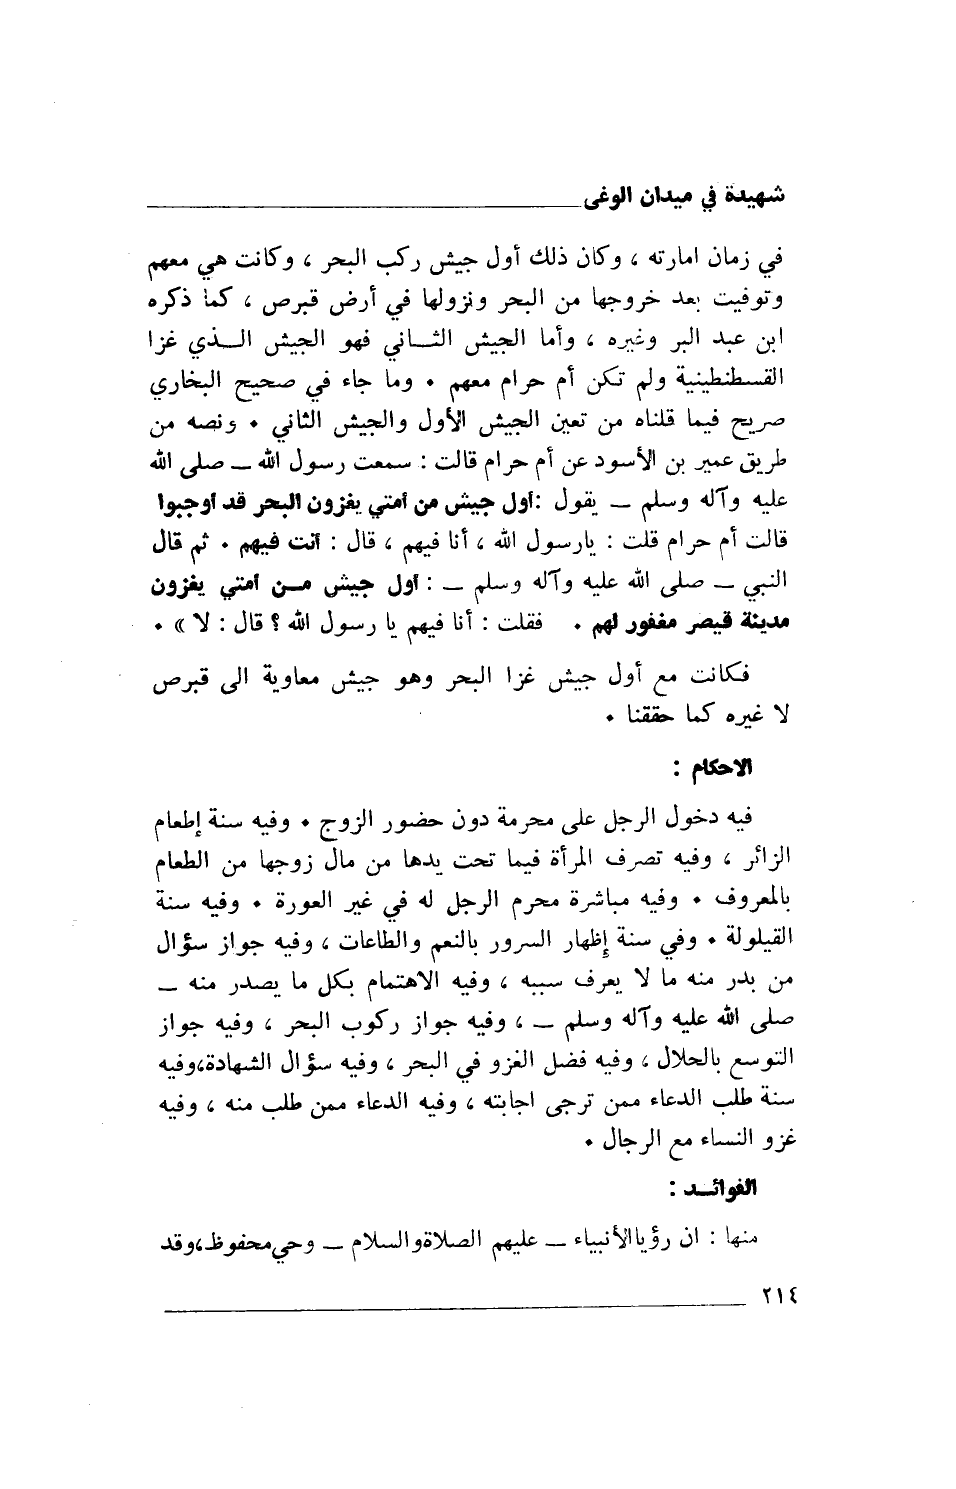 شهيدة في ميدان الوغى
في زمان امارته ، وكان ذلك أول جيش ركب البحر ، وكانت هي معهم
وتوفيت بعد خروجها من البحر ونزولها في أرض قبرص ، كما ذكره
ابن عبد البر وغيره ، وأما الجيش الثـــاني فهو الجيش الـــذي غزا
القسطنطينية ولم تكن أم حرام معهم ٠ وما جاء في صحيح البخاري
صريح فيما قلناه من تعين الجيش الأول والجيش الثاني ٠ ونصه من
طريق عمير بن الأسود عن أم حرام قالت : سمعت رسول الله ــ صلى الله
عليه وآله وسلم ــ يقول :أول جيش من أمتي يغزون البحر قد أوجبوا
قالت أم حرام قلت : يارسول الله ، أنا فيهم ، قال : أنت فيهم ٠ ثم قال
النبي ــ صلى الله عليه وآله وسلم ــ : أول جيش مــن أمتي يغزون
مدينة قيصر مغفور لهم ٠ فقلت : أنا فيهم يا رسول الله ؟ قال : لا » ٠
فكانت مع أول جيش غزا البحر وهو جيش معاوية الى قبرص
لا غيره كما حققنا ٠
الاحكام :
فيه دخول الرجل على محرمة دون حضور الزوج ٠ وفيه سنة إطعام
الزائر ، وفيه تصرف المرأة فيما تحت يدها من مال زوجها من الطعام
بالمعروف ٠ وفيه مباشرة محرم الرجل له في غير العورة ٠ وفيه سنة
القيلولة ٠ وفي سنة إظهار السرور بالنعم والطاعات ، وفيه جواز سؤال
من بدر منه ما لا يعرف سببه ، وفيه الاهتمام بكل ما يصدر منه ــ
صلى الله عليه وآله وسلم ــ ، وفيه جواز ركوب البحر ، وفيه جواز
التوسع بالحلال ، وفيه فضل الغزو في البحر ، وفيه سؤال الشهادة،وفيه
سنة طلب الدعاء ممن ترجى اجابته ، وفيه الدعاء ممن طلب منه ، وفيه
غزو النساء مع الرجال ٠
الفوائــد :
منها : ان رؤيا الأنبياء ــ عليهم الصلاة والسلام ــ وحي محفوظ،وقد
٢١٤